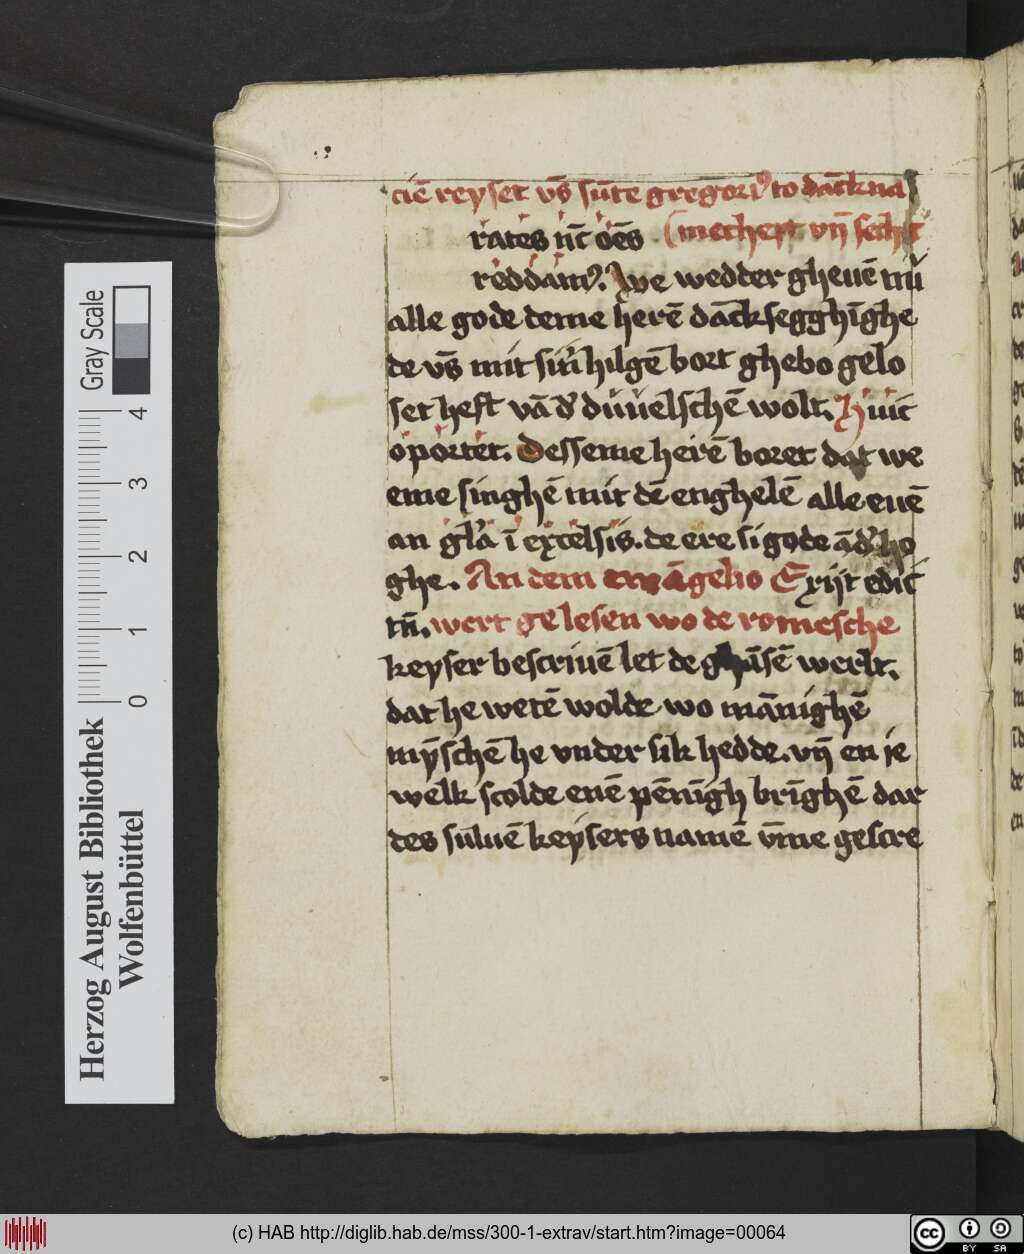 ciē reyset vn̄s sūte gregori9 to dāckna
rates nc̄ oēs (mechert vn̄ sech
reddam9. We wedder gheuē nu
alle gode deme herē dāck segghīghe
de vn̄s mit sin̄ hilgē bort ghebo gelo
set heft vā d' duuelschē wolt. Huic
oportet. Desseme herē boret dat we
eme singhē mit dē enghelē alle euē
an gl'a ī excelsis. de ere si gode ād' ho
ghe. An dem ewāgelio Exijt edic
tū. wert gelesen wo de romesche
keyser bescriuē let de gāsē werlt.
dat he wetē wolde wo mānighē
mȳschē he vnder sik hedde. vn̄ en je
welk scolde enē pēnīgh brīghē dar
des sūluē keysers namē v̄me gescre
Herzog August Bibliothek
Wolfenbüttel
0 1 2 3 4
Gray Scale
(c) HAB http://diglib.hab.de/mss/300-1-extrav/start.htm?image=00064
cc BY SA